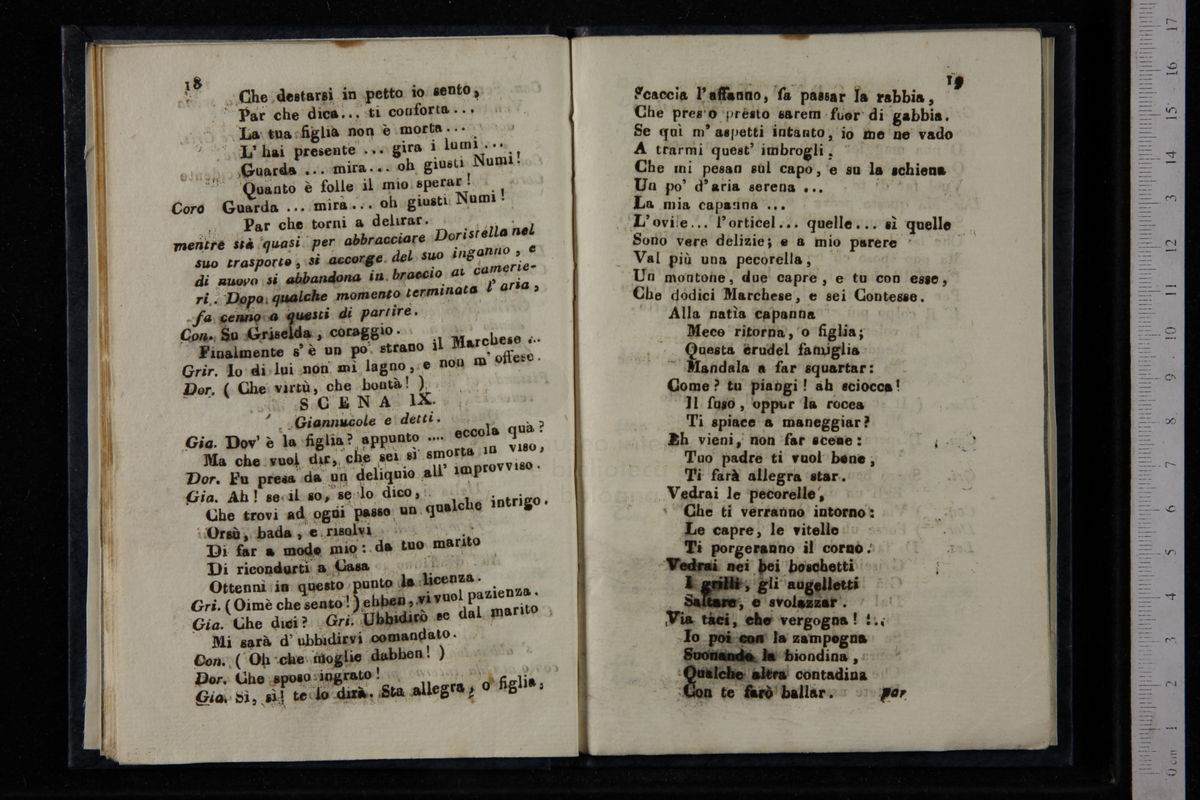 18
Che destarsi in petto io sento,
Par che dica... ti conforta...
La tua figlia non è morta...
L' hai presente ... gira i lumi ...
Guarda ... mira... oh giusti Numi!
Quanto è folle il mio sperar!
Coro Guarda ... mira... oh giusti Numi!
Par che torni a delirar.
mentre stà quasi per abbracciare Doristella nel
suo trasporto, si accorge del suo inganno, e
di nuovo si abbandona in braccio ai camerie-
ri. Dopo qualche momento terminata l' aria,
fa cenno a questi di partire.
Con. Su Griselda, coraggio.
Finalmente s' è un po' strano il Marchese ...
Grir. Io di lui non mi lagno, e non m' offese.
Dor. ( Che virtù, che bontà! )
SCENA IX.
Giannucole e detti.
Gia. Dov' è la figlia? appunto .... eccola quà?
Ma che vuol dir, che sei sì smorta in viso,
Dor. Fu presa da un deliquio all' improvviso.
Gia. Ah! se il so, se lo dico,
Che trovi ad ogni passo un qualche intrigo.
Orsù, bada, e risolvi
Di far a modo mio: da tuo marito
Di ricondurti a Casa
Ottenni in questo punto la licenza.
Gri. (Oimè che sento!) ebben, vi vuol pazienza.
Gia. Che dici? Gri. Ubbidirò se dal marito
Mi sarà d' ubbidirvi comandato.
Con. ( Oh che moglie dabben! )
Dor. Che sposo ingrato!
Gia. Sì, sì! te lo dirà. Sta allegra, o figlia,
19
Scaccia l'affanno, fa passar la rabbia,
Che presto presto sarem fuor di gabbia.
Se quì m' aspetti intanto, io me ne vado
A trarmi quest' imbrogli,
Che mi pesan sul capo, e su la schiena
Un po' d'aria serena ...
La mia capanna ...
L'ovile... l'orticel... quelle... sì quelle
Sono vere delizie; e a mio parere
Val più una pecorella,
Un montone, due capre, e tu con esse,
Che dodici Marchese, e sei Contesse.
Alla natìa capanna
Meco ritorna, o figlia;
Questa crudel famiglia
Mandala a far squartar:
Come? tu piangi! ah sciocca!
Il fuso, oppur la rocca
Ti spiace a maneggiar?
Eh vieni, non far scene:
Tuo padre ti vuol bene,
Ti farà allegra star.
Vedrai le pecorelle,
Che ti verranno intorno:
Le capre, le vitelle
Ti porgeranno il corno.
Vedrai nei bei boschetti
I grilli, gli augelletti
Saltare, e svolazzar.
Via taci, che vergogna! !..
Io poi con la zampogna
Suonando la biondina,
Qualche altra contadina
Con te farò ballar.
par